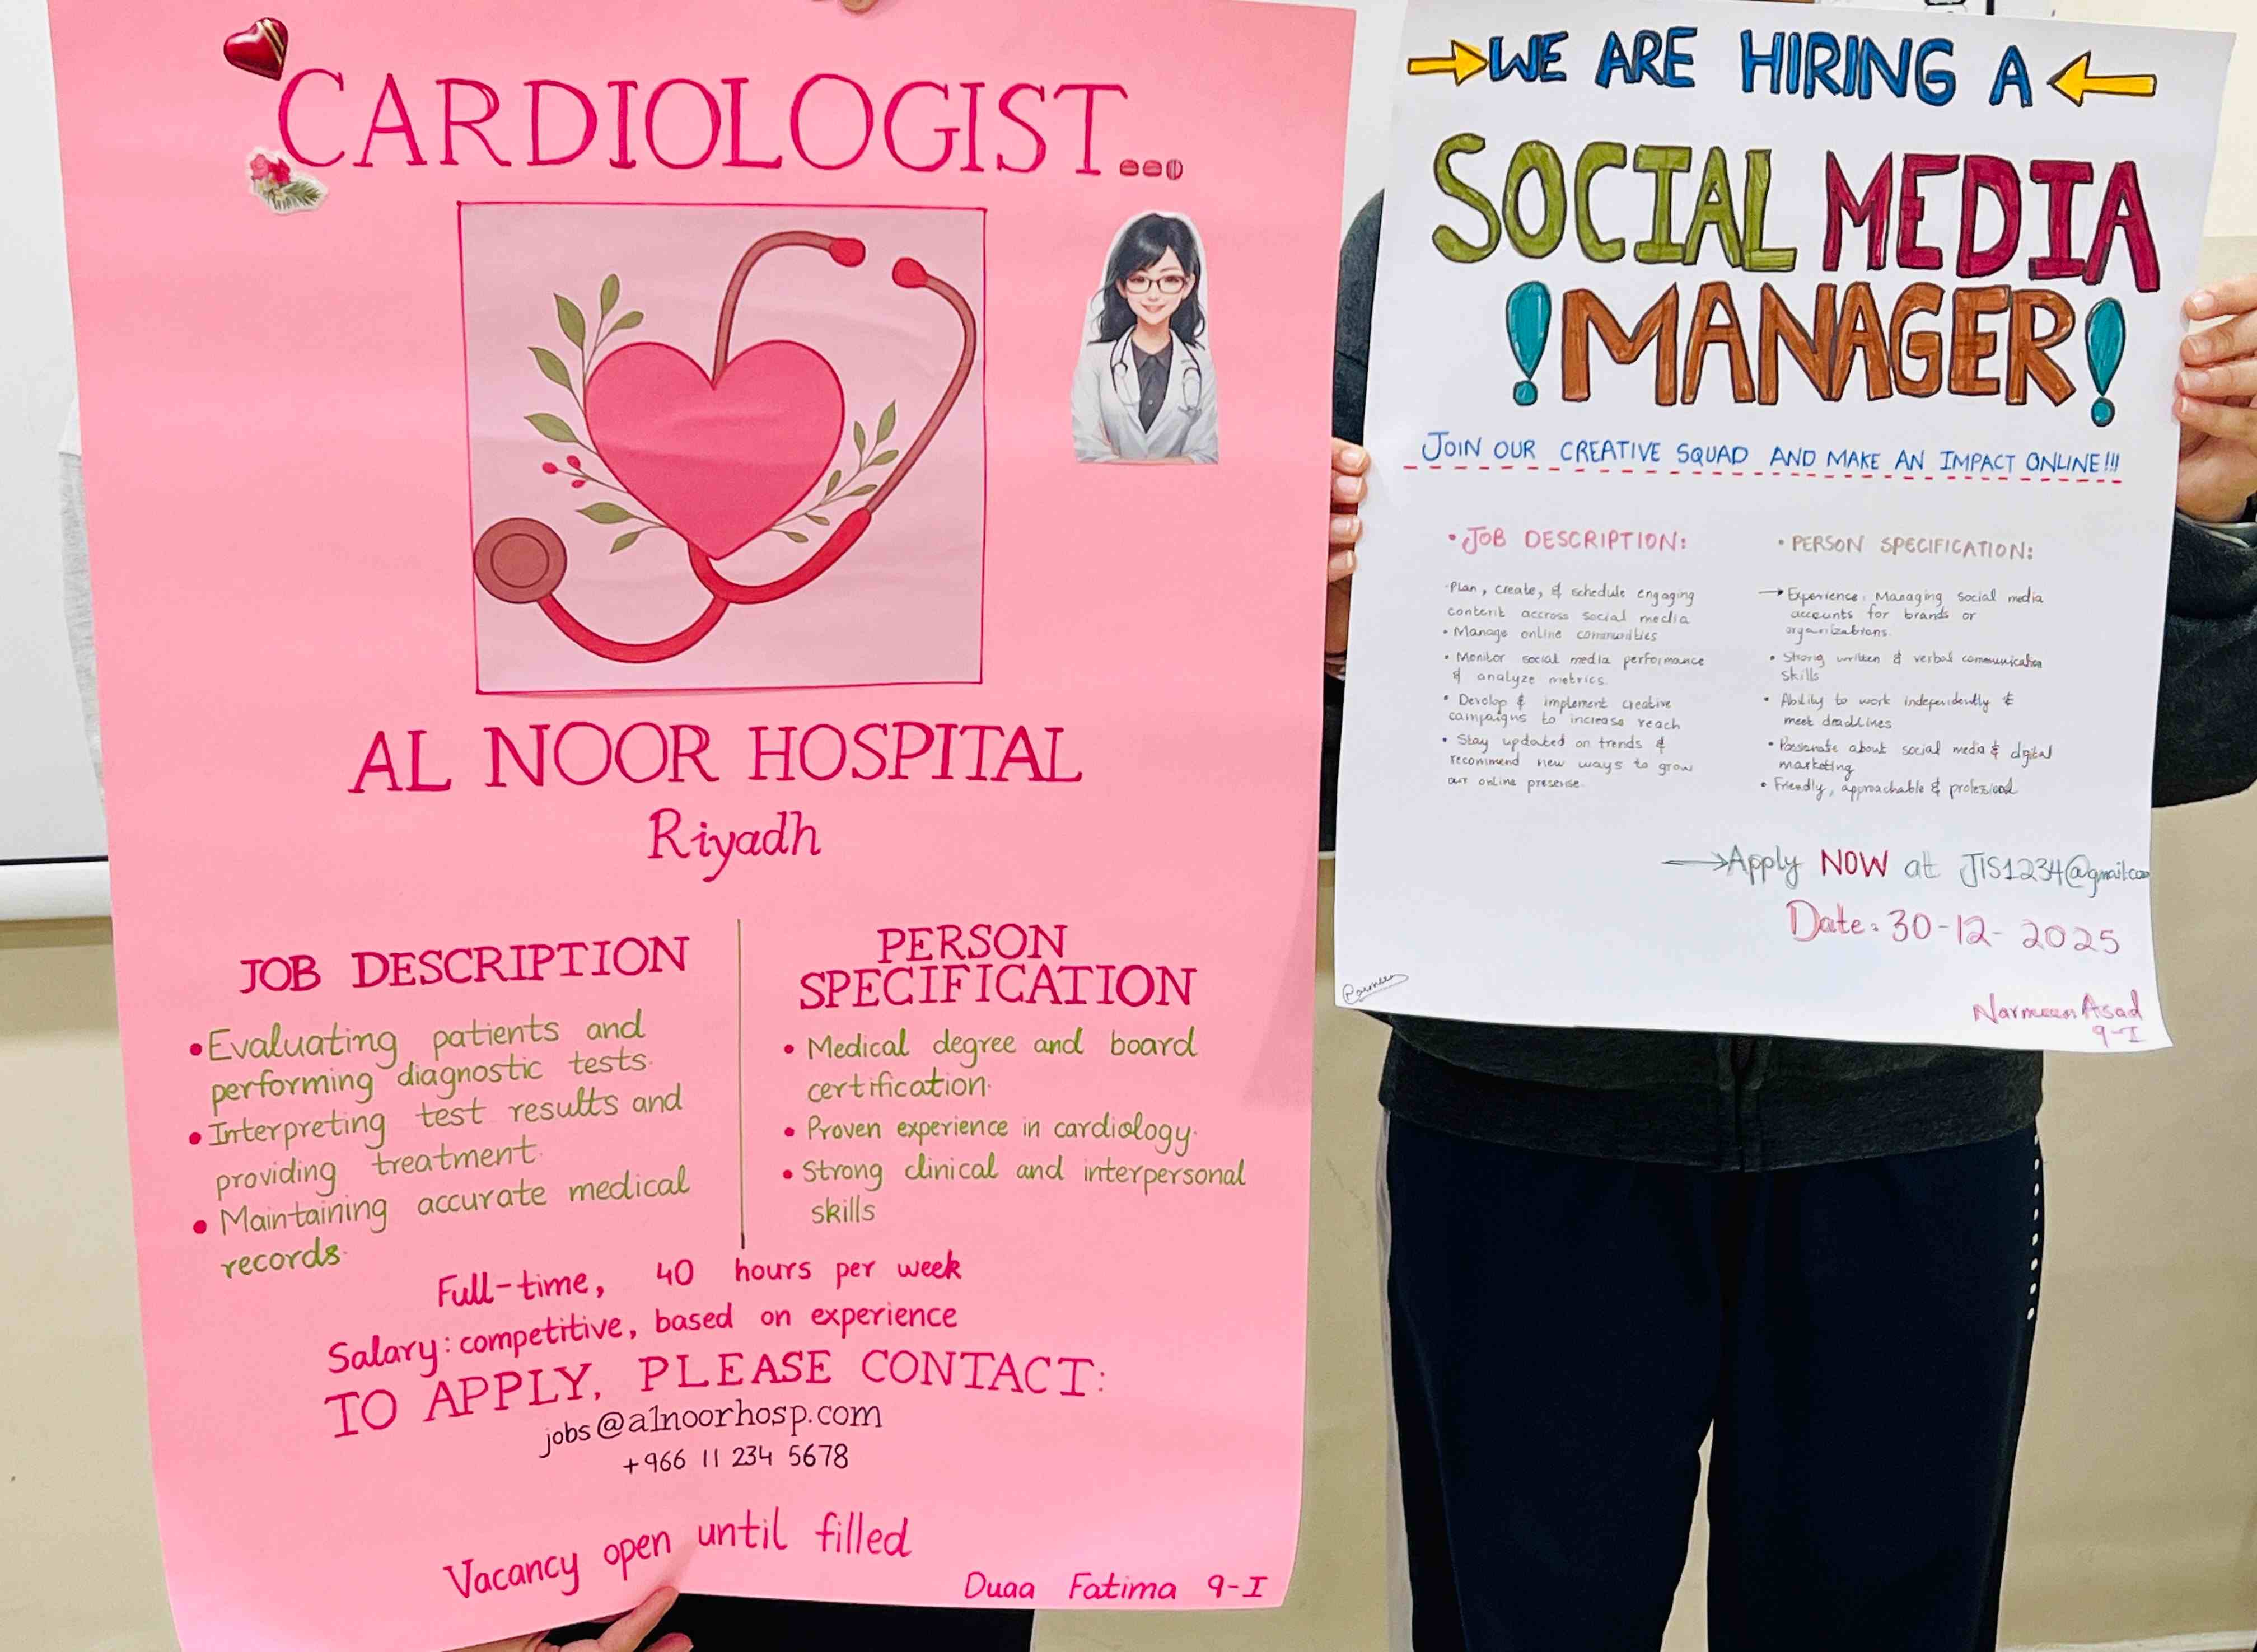 CARDIOLOGIST...
AL NOOR HOSPITAL
Riyadh
JOB DESCRIPTION
•Evaluating patients and
performing diagnostic tests.
•Interpreting test results and
providing treatment.
•Maintaining accurate medical
records.
PERSON
SPECIFICATION
•Medical degree and board
certification.
•Proven experience in cardiology.
•Strong clinical and interpersonal
skills
Full-time, 40 hours per week
Salary: competitive, based on experience
TO APPLY, PLEASE CONTACT:
jobs@alnoorhosp.com
+966 11 234 5678
Vacancy open until filled
Duaa Fatima 9-I
WE ARE HIRING A
SOCIAL MEDIA
!MANAGER!
JOIN OUR CREATIVE SQUAD AND MAKE AN IMPACT ONLINE!!!
•JOB DESCRIPTION:
·Plan, create, & schedule engaging
content accross social media
•Manage online communities
•Monitor social media performance
& analyze metrics.
•Develop & implement creative
campaigns to increase reach
•Stay updated on trends &
recommend new ways to grow
our online presense.
•PERSON SPECIFICATION:
→Experience: Managing social media
accounts for brands or
organizations.
•Strong written & verbal communication
skills
•Ability to work independently &
meet deadlines
•Passionate about social media & digital
marketing
•Friendly, approachable & professional
→Apply NOW at JIS1234@gmail.com
Date: 30-12-2025
Narmeen Asad
9-I